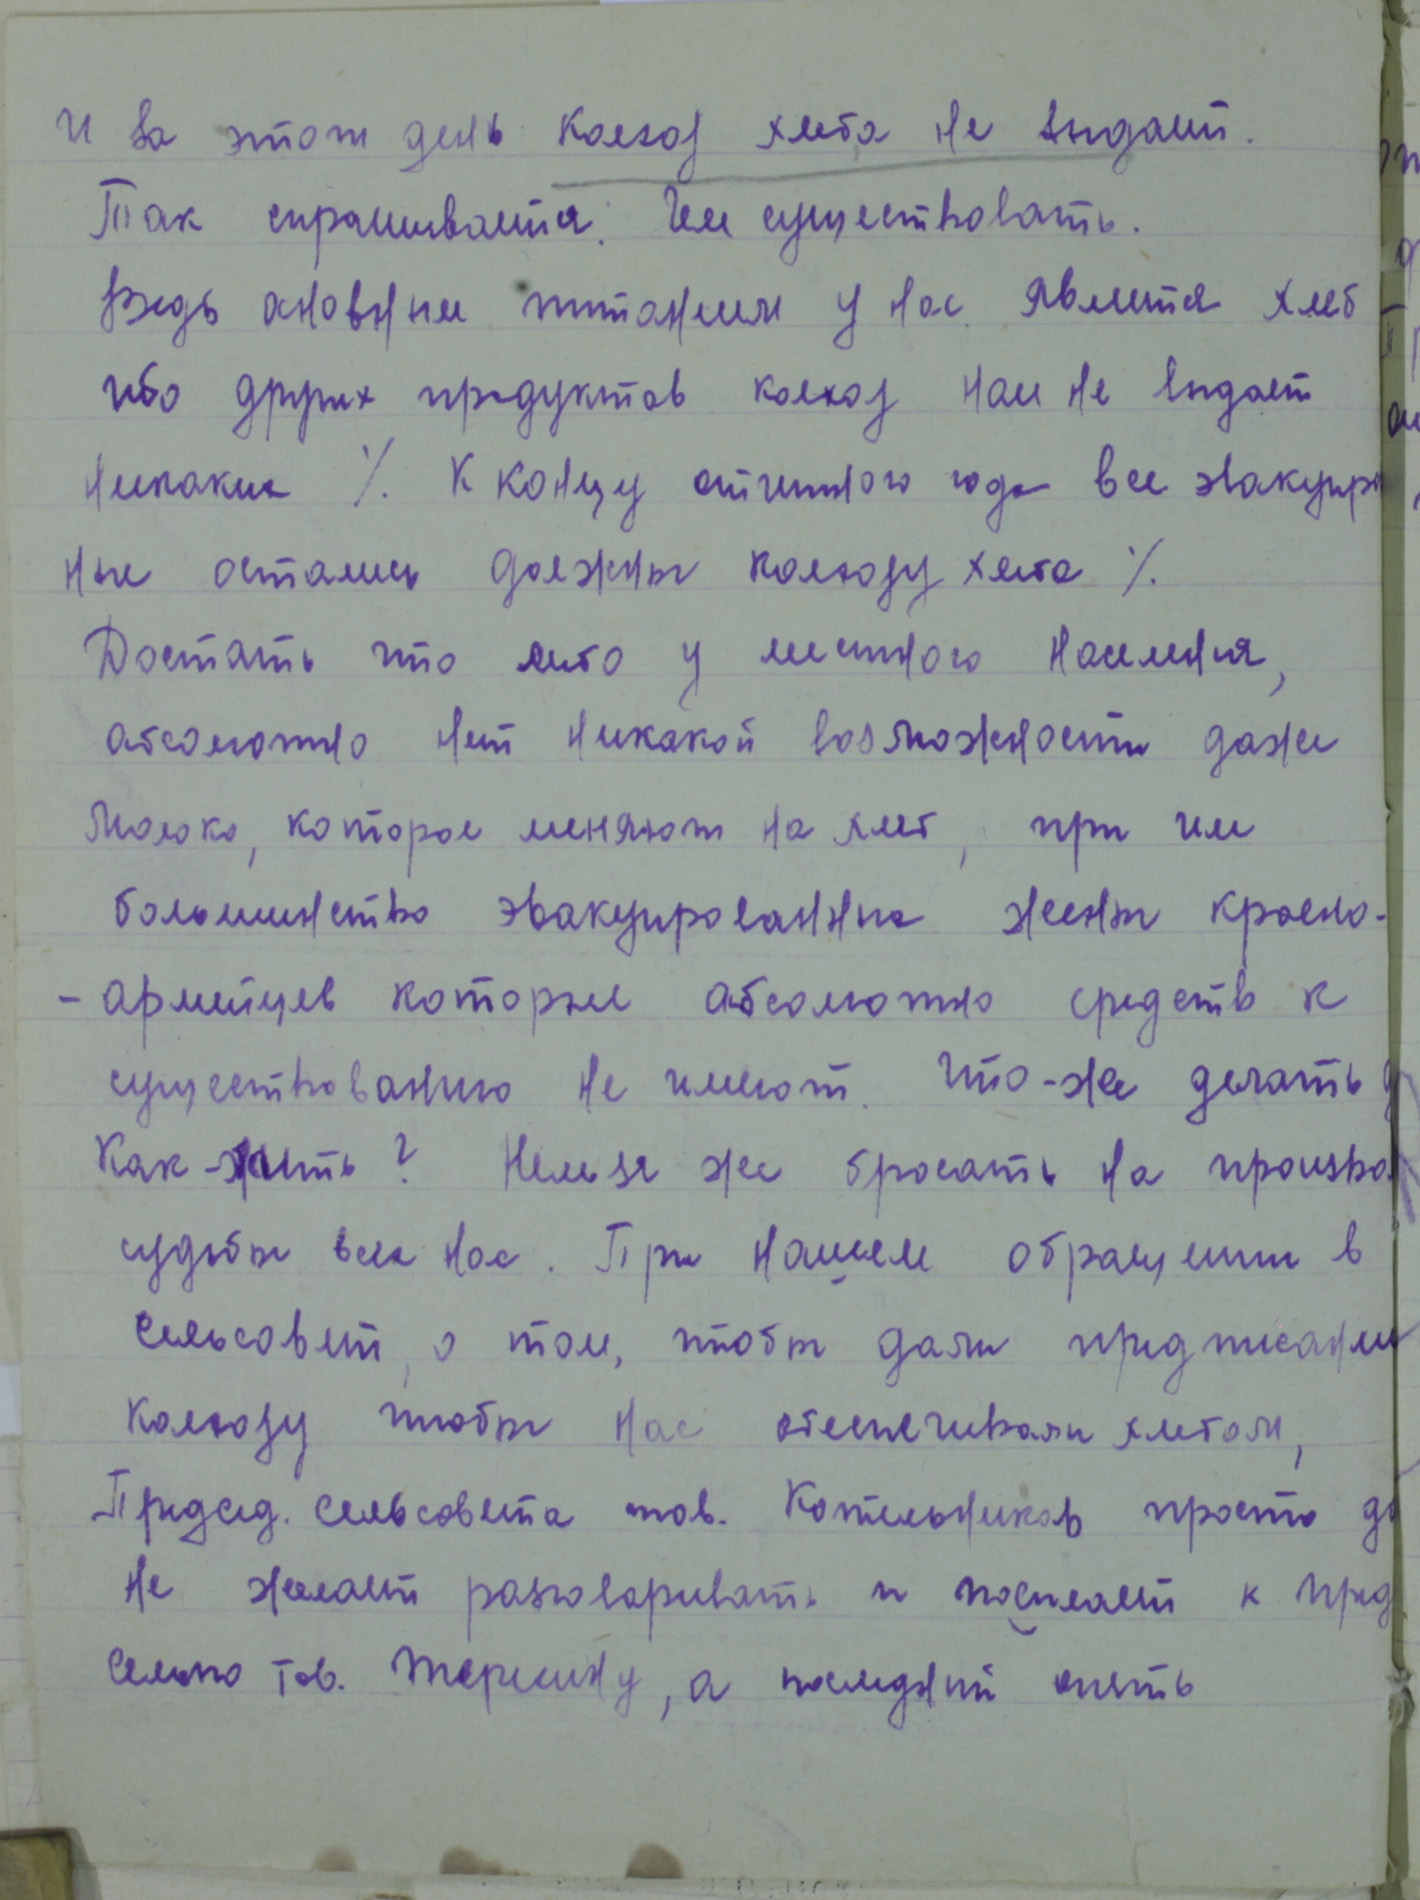 и за этот день колхоз хлеба не выдает.
Так спрашивается: Чем существовать.
Ведь основным питанием у нас является хлеб
ибо других продуктов колхоз нам не выдает
никаких ./. К концу отчетного года все эвакуиро
ные остались должны колхозу хлеба ./.
Достать что либо у местного населения,
абсолютно нет никакой возможности даже
молоко, которое меняют на хлеб, при чем
большинство эвакуированных жены красно-
- армейцев которые абсолютно средств к
существованию не имеют. Что-же делать
Как-жить? Нельзя же бросать на произво
судьбы всех нас. При нашем обращении в
сельсовет, о том, чтобы дали предписание
колхозу чтобы нас обеспечивали хлебом,
Председ. сельсовета тов. Котельников просто
не желает разговаривать и посылает к пред.
Сельпо тов. а последний опять